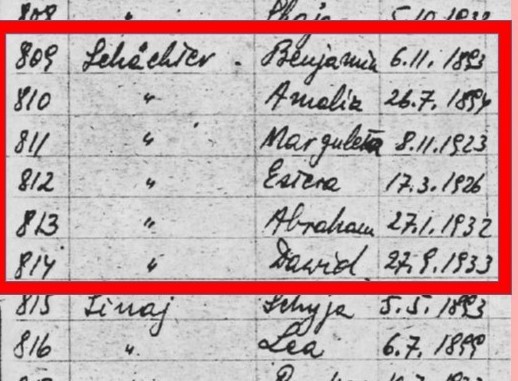 808 "
809 Schächter . Benjamin 6.11.1893
810 " Amalia 26.7.1894
811 " Marguleta 8.11.1923
812 " Estera 17.3.1926
813 " Abraham 27.1.1932
814 " Dawid 27.9.1933
815 Sinaj Schyja 5.5.1893
816 " Lea 6.7.1899